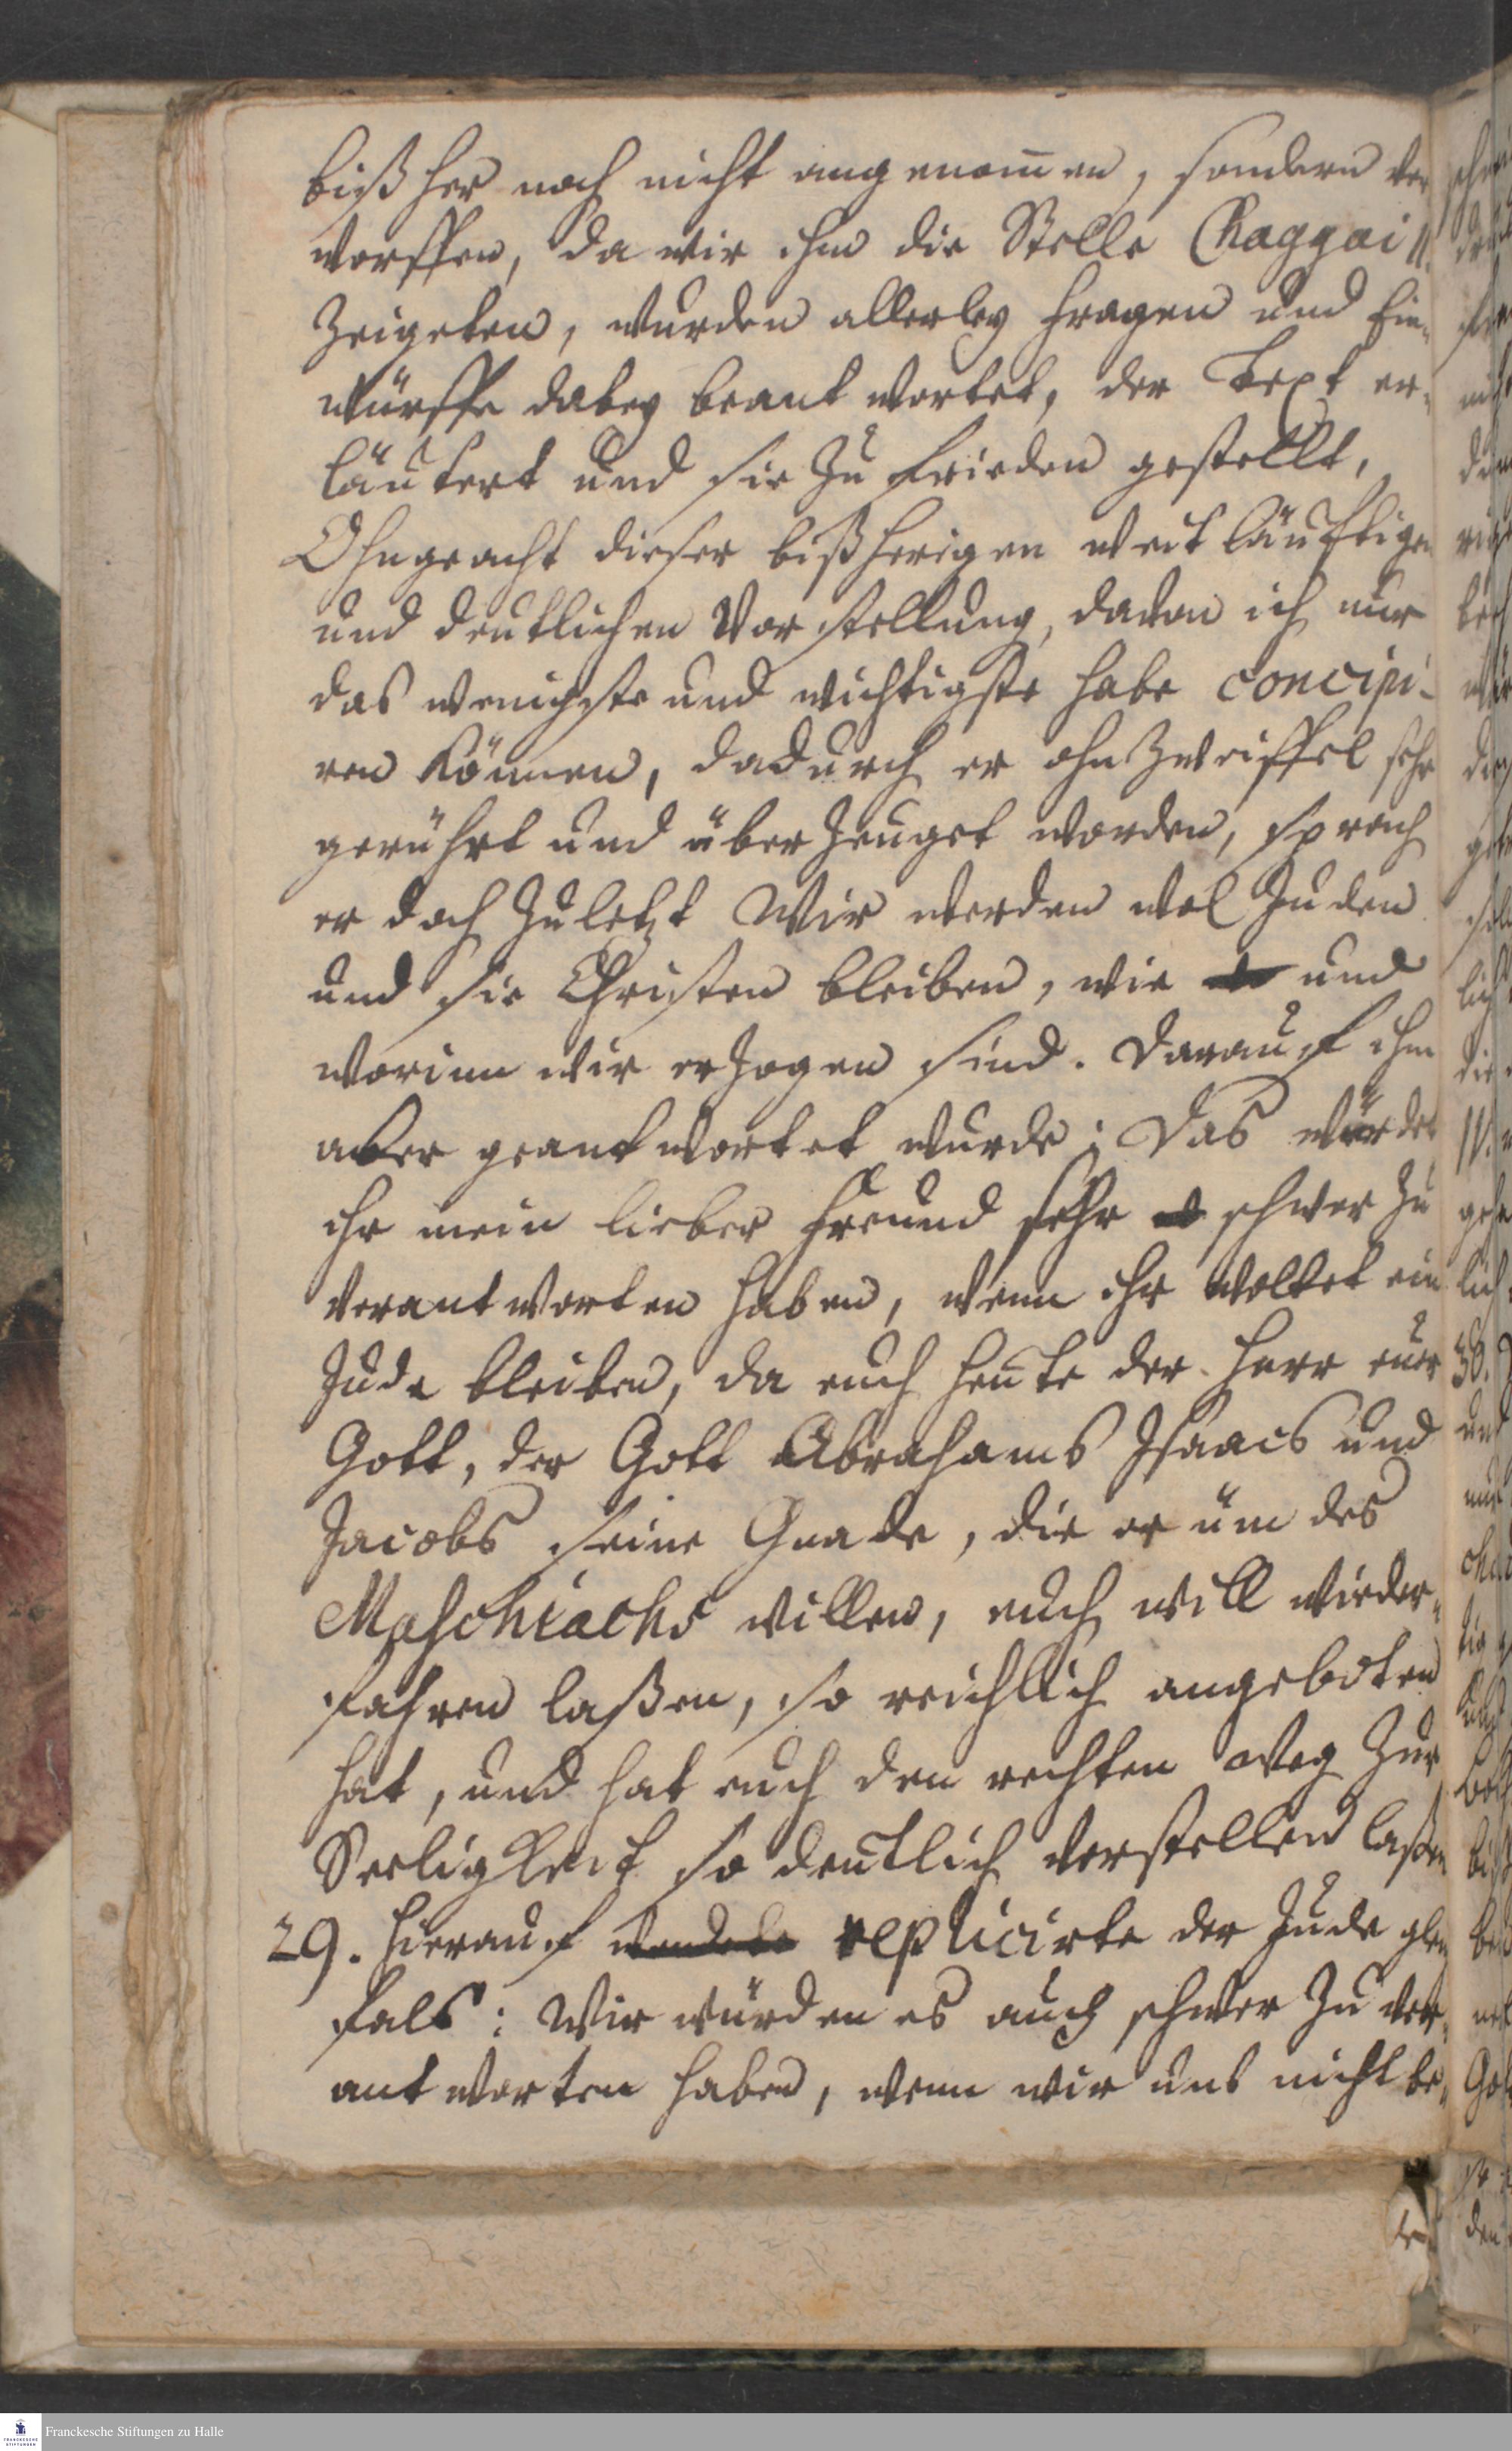 bißher noch nicht angenom̄en, sondern ver
worffen, da wir ihm die Stelle Chaggai II.
zeigeten, wurden allerley Fragen und Ein-
würffe dabey beantwortet, der Text er-
läutert und sie zu frieden gestellt,
Ohngeacht dieser bißherigen weitläufftigen
und deutlichen Vorstellung, davon ich nur
das wenigste und wichtigste habe concipi-
ren können, dadurch er ohnzweiffel sehr
gerührt und überzeuget worden, sprach
er doch zuletzt Wir werden wol Juden
und sie Christen bleiben, wie und
worinn wir erzogen sind. Darauf ihm
aber geantwortet wurde; Das würdet
ihr mein lieber Freund sehr schwer zu
verantworten haben, wenn ihr woltet ein
Jude bleiben, da euch heute der Herr euer
Gott, der Gott Abrahams Isaacs und
Jacobs seine Gnade, die er um des
Maschiachs willen, euch will wieder-
fahren laßen, so reichllich angeboten
hat, und hat euch den rechten Weg zur
Seeligkeit so deutlich vorstellen laßen
29. Hierauf replicirte der Jude glei
fals: Wir würden es auch schwer zu ver-
antworten haben, wenn wir uns nicht be-
Franckesche Stiftungen zu Halle